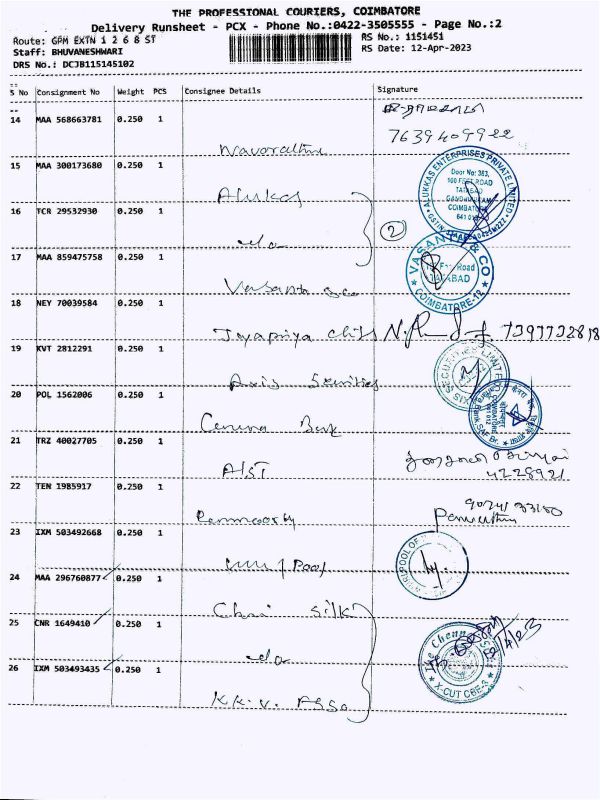 THE PROFESSIONAL COURIERS, COIMBATORE
Delivery Runsheet - PCX - Phone No.:0422-3505555 - Page No.:2
Route: GPM EXTN 1 2 6 8 ST
RS No.: 1151451
Staff: BHUVANESHWARI
RS Date: 12-Apr-2023
DRS No.: DCJB115145102
S No Consignment No Weight PCS Consignee Details Signature
14 MAA 568663781 0.250 1
7639409922
Navarathna
15 MAA 300173680 0.250 1
Alukas
ALUKKAS ENTERPRISES PRIVATE LIMITED
Door No: 383,
100 FEET ROAD
TATABAD
GANDHIPURAM
COIMBATORE
16 TCR 29532930 0.250 1
do
2
17 MAA 859475758 0.250 1
Vasanta & co
VASANTA & CO
Road
TATABAD
COIMBATORE-12
18 NEY 70039584 0.250 1
Jayapriya chits
7397732818
19 KVT 2812291 0.250 1
Axis Securities
AXIS SECURITIES LIMITED
20 POL 1562006 0.250 1
Canara Bank
21 TRZ 40027705 0.250 1
AIST
4228921
22 TEN 1985917 0.250 1
23 IXM 503492668 0.250 1
Whirlpool
WHIRLPOOL OF
24 MAA 296760877 0.250 1
Chennai Silk
25 CNR 1649410 0.250 1
do
The Chennai Silks
X-CUT CBE-3
26 IXM 503493435 0.250 1
K.K.V. Asso